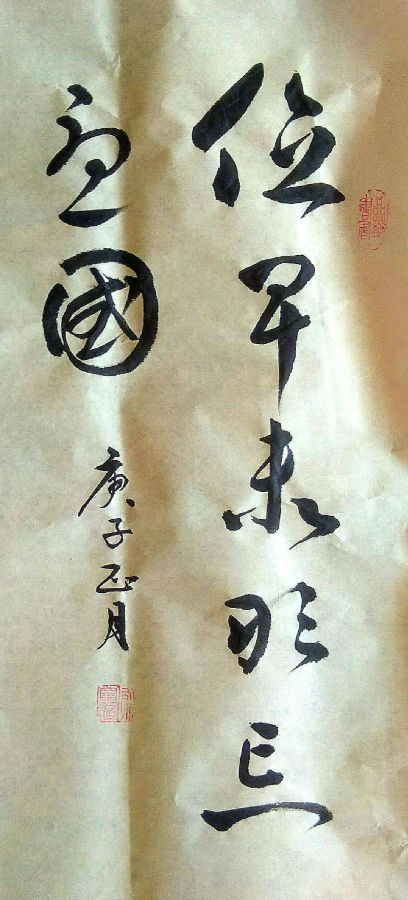 位卑未敢忘
憂國
庚子正月